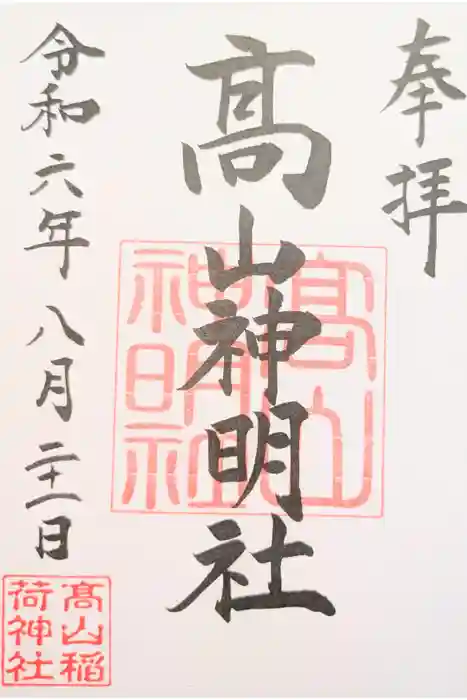 奉拝
髙山神明社
令和六年八月二十一日
髙山
神明社
髙山稲
荷神社